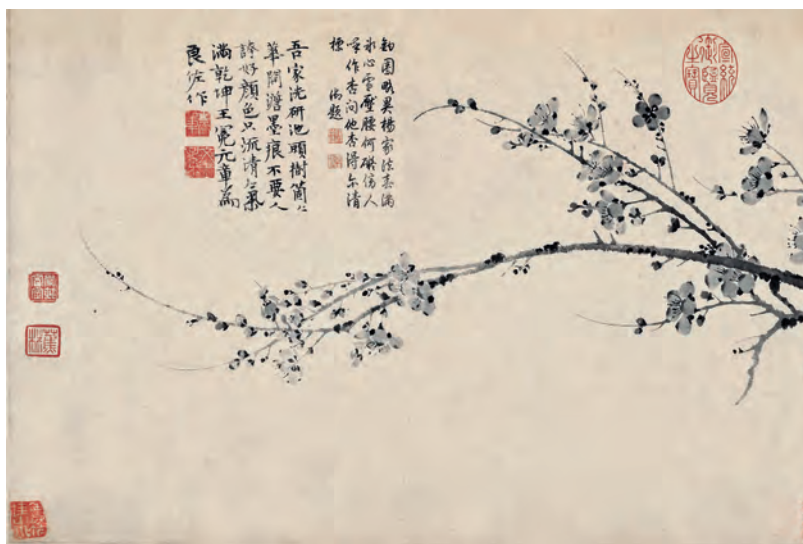 宣統御覽之寶
鈎圈略異楊家法春滿
冰心雪壓腰何礙傍人
喚作杏問他杏得尔清
標
御題
吾家洗研池頭樹箇〻
華開澹墨痕不要人
誇好顏色只流清氣
滿乾坤王冕元章爲
良佐作